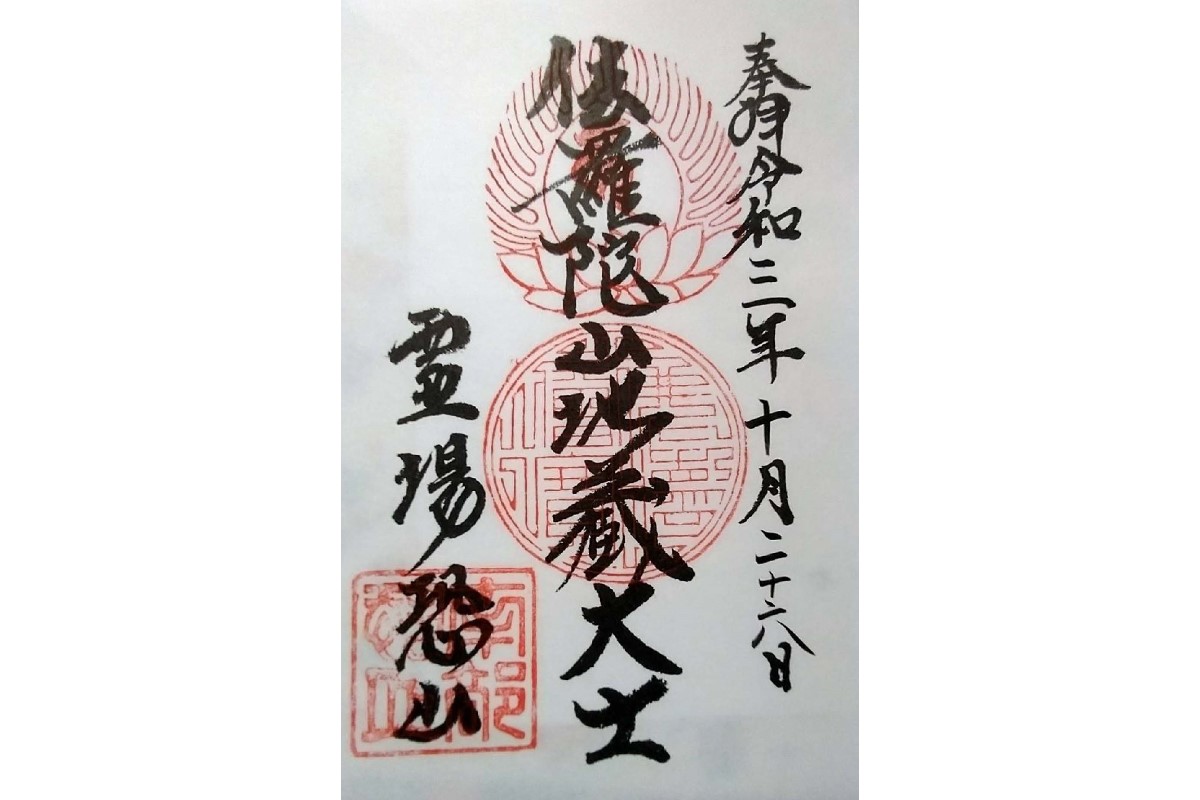 奉拝 令和三年十月二十六日
佉羅陀山地蔵大士
霊場恐山
南部
恐山